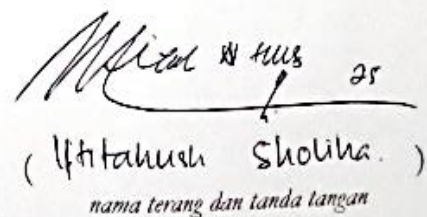 25
( Iftitahush Sholiha. )
nama terang dan tanda tangan